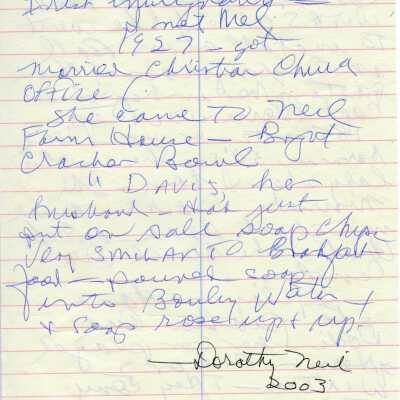 & met Mel
1927 – got
married Christian Church
Office (.
She came to Neil
Farm House – Bought
Cracker Bowl
" Davis, her
husband – had just
put on sale soap chips
Very similar to Breakfast
food – poured soap
into Boiling Water +
+ soap rose up + up!
— Dorothy Neil
2003